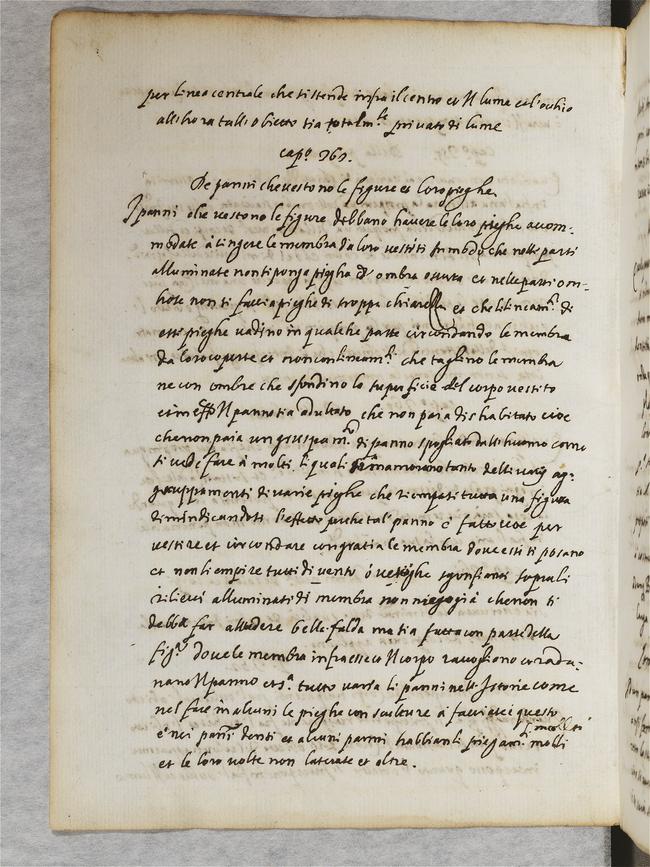 per linea centrale che si stende infra il centro et Il lume et l'ochio
allhora tall obietto sia totalm.te privato di lume
cap.o 367.
De panni che vestono le figure et loro pieghe.
I panni che vestono le figure debbano havere le loro pieghe acom-
modate à cingere le membra da loro vestiti In modo che nelle parti
alluminate non si ponga piegha d' ombra oscura et nelle parti om-
brose non si faccia pieghe di troppa chiarezza et che li lineam.ti di
essi pieghe vadino in qualche parte circondando le membra
da loro coperte et non con lineam.ti che taglino le membra
ne con ombre che sfondino la superficie del corpo vestito
et in Il panno sia adattato che non paia dishabitato cioe
che non paia un gruspam.to di panno spogliato dall huomo como
si vede fare à molti li quali s'inamorano tanto delli varij ag-
gruppamenti di varie pieghe che n'empati tutta una figura
dimindicandosi l'effetto perche tal panno è fatto cioe per
vestire et circondare con gratia le membra dove essi si posano
et non li empire tutti di vento ò vesighe sgonfiansi sopra li
rilievi alluminati di membra non niego già che non si
debba far alledere belle falda ma sia fatta con parte della
fig.a dove le membra infra esse co Il corpo racogliono et radu-
nano Il panno et s.a tutto varia li panni nelle Istorie come
nel fare in alcuni le pieghe con sculture à facciate et questo
è nei panni denti et alcuni panni habbianli piegam.ti molli
et le loro volte non laterate et oltre.